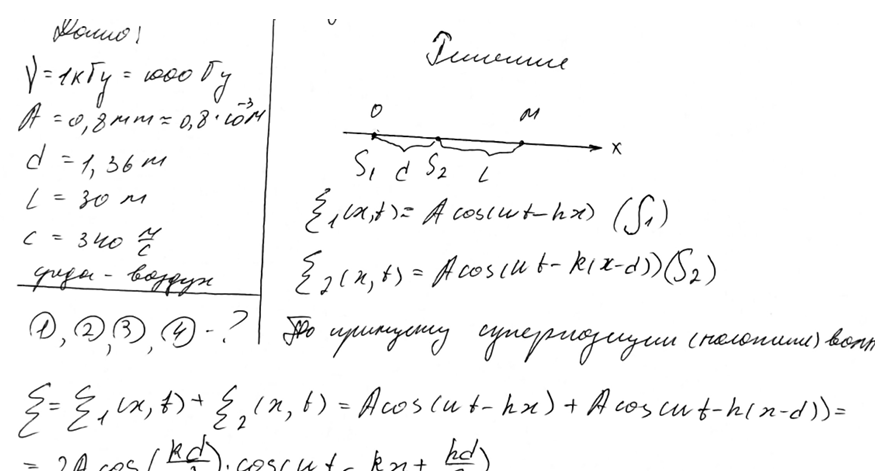 Дано:
ν = 1кГц = 1000 Гц
A = 0,8 мм = 0,8·10⁻³м
d = 1,36 м
L = 30 м
c = 340 м/с
среда - воздух
①, ②, ③, ④ - ?
Решение
O M
S₁ d S₂ L x
ξ₁(x,t) = A cos(ωt - kx) (S₁)
ξ₂(x,t) = A cos(ωt - k(x-d)) (S₂)
По принципу суперпозиции (наложения) волн
ξ = ξ₁(x,t) + ξ₂(x,t) = A cos(ωt - kx) + A cos(ωt - k(x-d)) =
= 2A cos(kd/2)·cos(ωt - kx + kd/2)